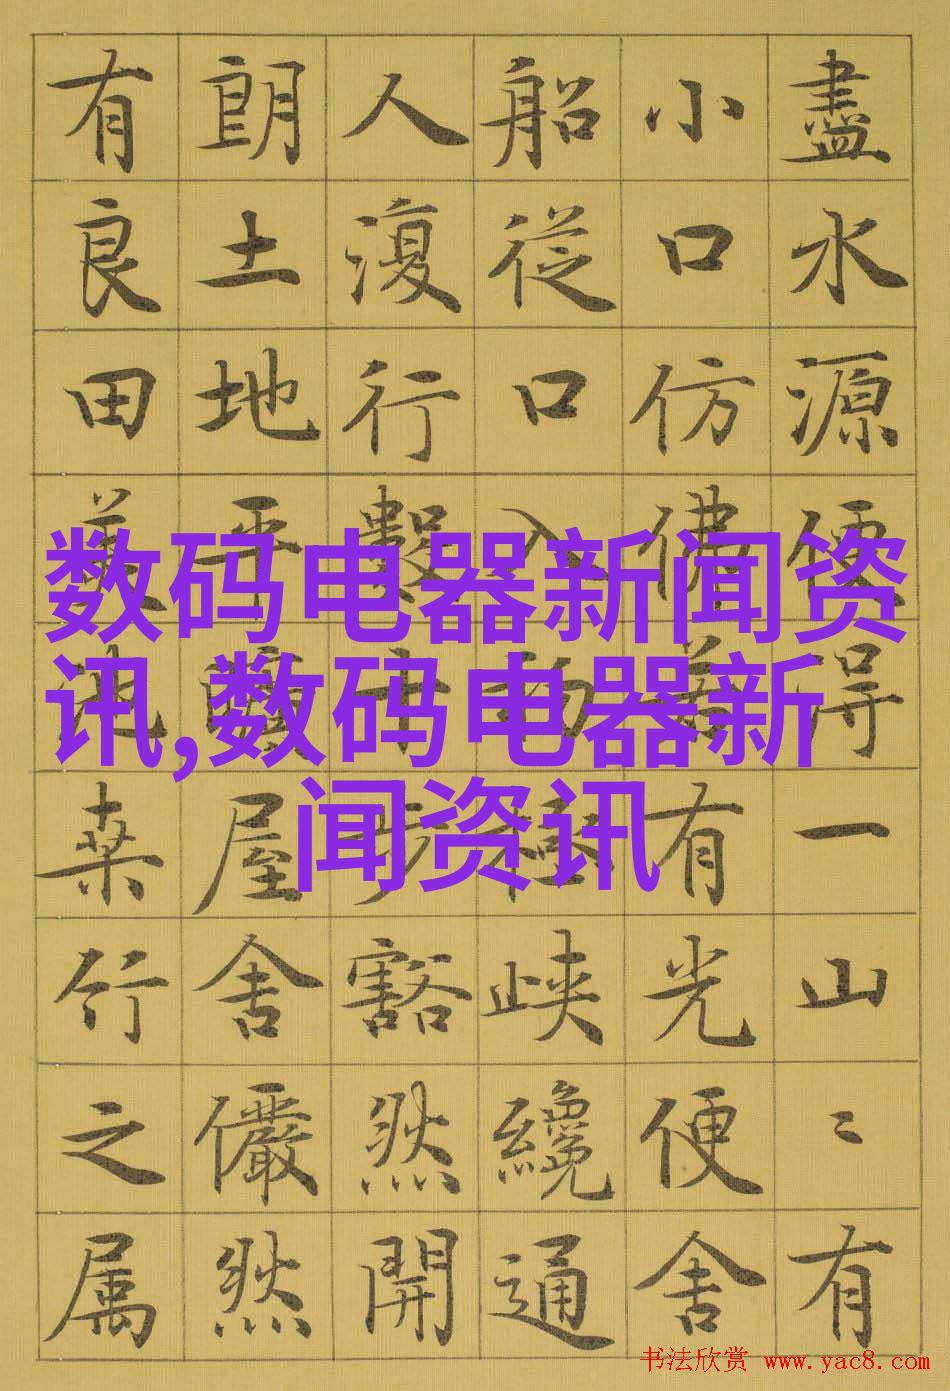 盡水源便得一山〻有
小口仿佛若有光便舍
船從口入初極峽纔通
人復行數十步豁然開
朗土地平曠屋舍儼然
有良田美池桑竹之属
数码电器新闻资
讯,数码电器新
闻资讯
书法欣赏 www.yac8.com